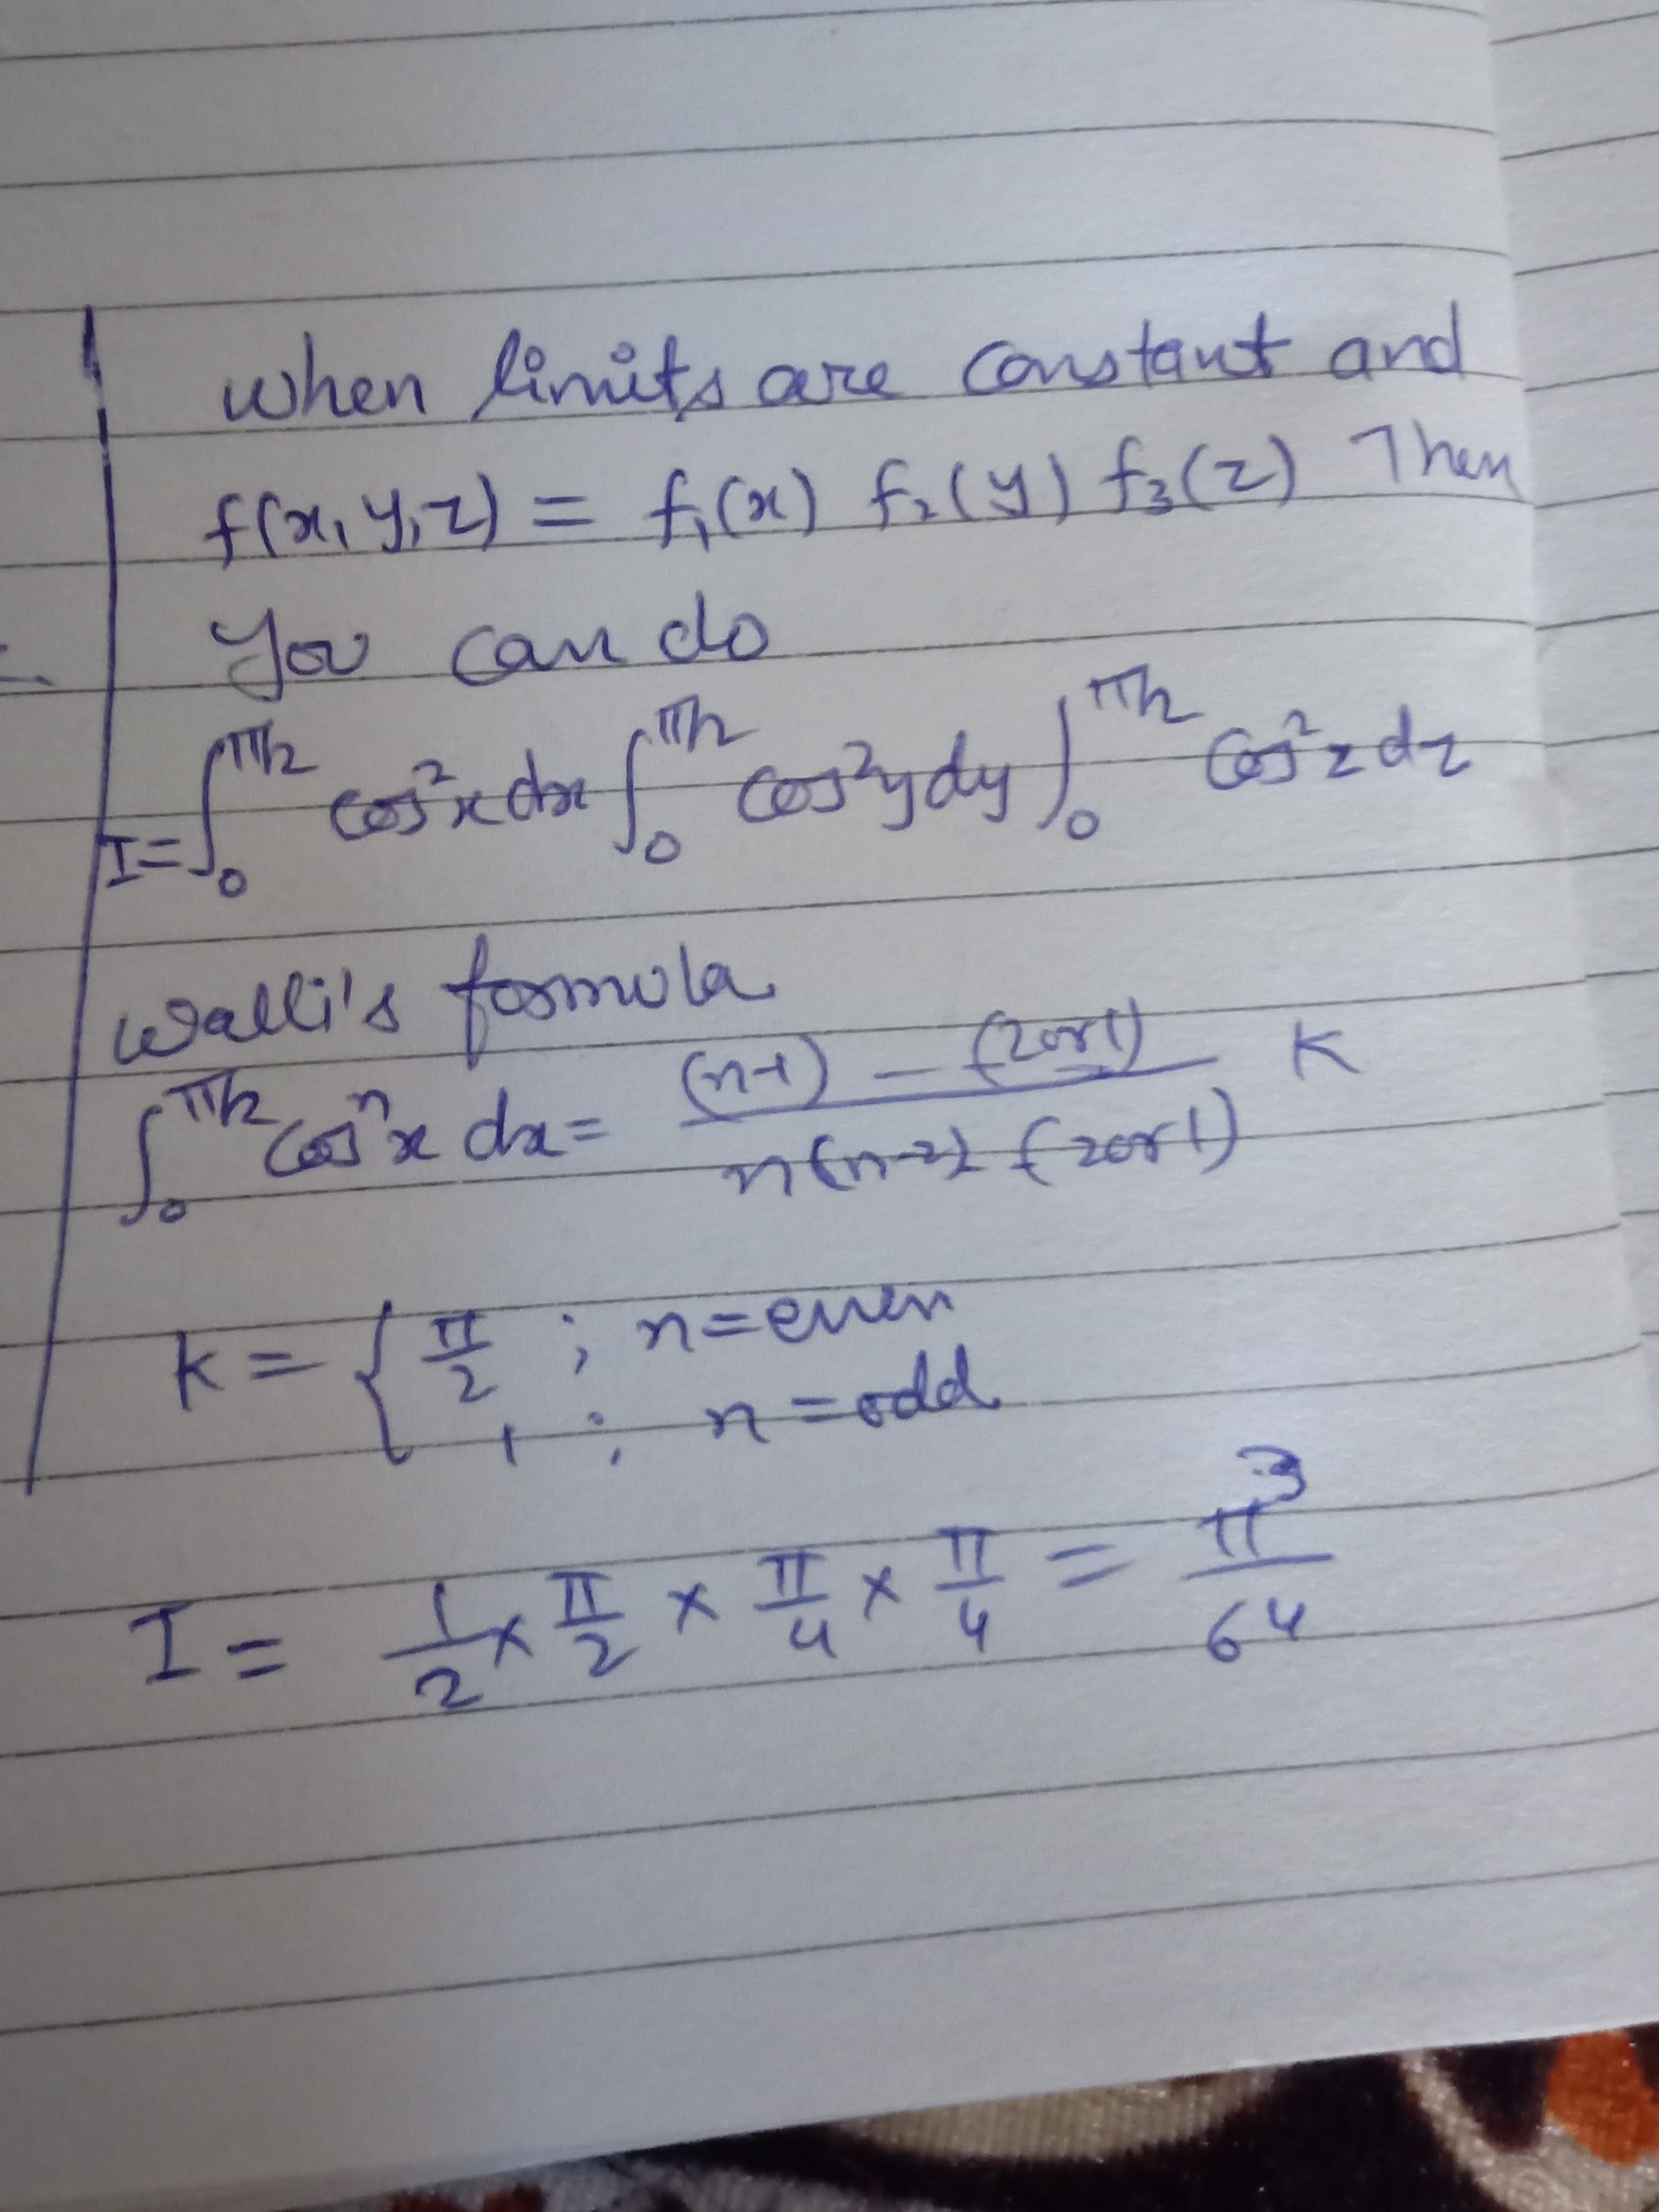 when limits are constant and
f(x, y, z) = f₁(x) f₂(y) f₃(z) Then
you can do
I = ∫₀^π/2 cos²x dx ∫₀^π/2 cos²y dy ∫₀^π/2 cos²z dz
Walli's formula
∫₀^π/2 cosⁿx dx = (n-1) - (2 or 1) / n(n-2) (2 or 1) K
K = { π/2 ; n = even
1 ; n = odd
I = 1/2 × π/2 × π/4 × π/4 = π³/64